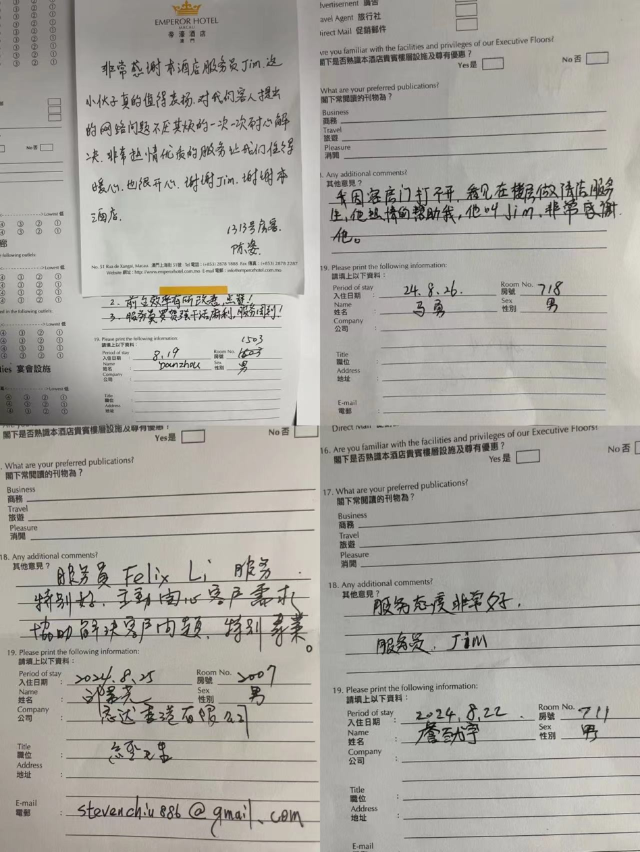 EMPEROR HOTEL
MACAU
帝濠酒店
澳門
非常感谢本酒店服务员Jim.这
小伙子真的值得表扬.对我们客人提出
的网络问题不厌其烦的一次一次耐心解
决.非常热情优质的服务让我们住得
暖心.也很开心.谢谢Jim.谢谢本
酒店.
1313号房客
2. 前台效率有所改善,点赞!
19. Please print the following information:
請填上以下資料
1503
Period of stay
入住日期
8,19
Room No.
房號
Name
姓名
Sex
性別
男
Company
公司
Title
職位
Address
地址
E-mail
電郵
Advertisement 廣告
Travel Agent 旅行社
Direct Mail 促銷郵件
Are you familiar with the facilities and privileges of our Executive Floors?
閣下是否熟識本酒店貴賓樓層設施及尊有優惠?
Yes是
No否
What are your preferred publications?
閣下常閱讀的刊物為?
Business
商務
Travel
旅遊
Pleasure
消閒
Any additional comments?
其他意見?
我因客房门打不开,我见在楼层做清洁服务
生,他热情的帮助我,他叫Jim,非常感谢
他。
19. Please print the following information:
請填上以下資料:
Period of stay
入住日期 : 24.8.26.
Room No.
房號 : 718
Name
姓名 : 马勇
Sex
性別 : 男
Company
公司 :
Title
職位 :
Address
地址 :
E-mail
電郵 :
閣下是否熟識本酒店貴賓樓層設施及尊有優惠?
Yes是
No否
What are your preferred publications?
閣下常閱讀的刊物為?
Business
商務
Travel
旅遊
Pleasure
消閒
18. Any additional comments?
其他意見?
服務員 Felix Li 服務
特别好.主動関心客戶需求
協助解決客戶問題.特別專業。
19. Please print the following information:
請填上以下資料:
Period of stay
入住日期 : 2024.8.25
Room No.
房號 : 2007
Name
姓名 :
Sex
性別 : 男
Company
公司 :
Title
職位 :
Address
地址 :
E-mail
電郵 : stevenchiu886@gmail.com
16. Are you familiar with the facilities and privileges of our Executive Floors?
閣下是否熟識本酒店貴賓樓層設施及尊有優惠?
Yes是
No否
17. What are your preferred publications?
閣下常閱讀的刊物為?
Business
商務
Travel
旅遊
Pleasure
消閒
18. Any additional comments?
其他意見?
服务态度非常好.
服务员.JIM
19. Please print the following information:
請填上以下資料:
Period of stay
入住日期 : 2024.8.22.
Room No.
房號 : 711
Name
姓名 :
Sex
性別 : 男
Company
公司 :
Title
職位 :
Address
地址 :
E-mail